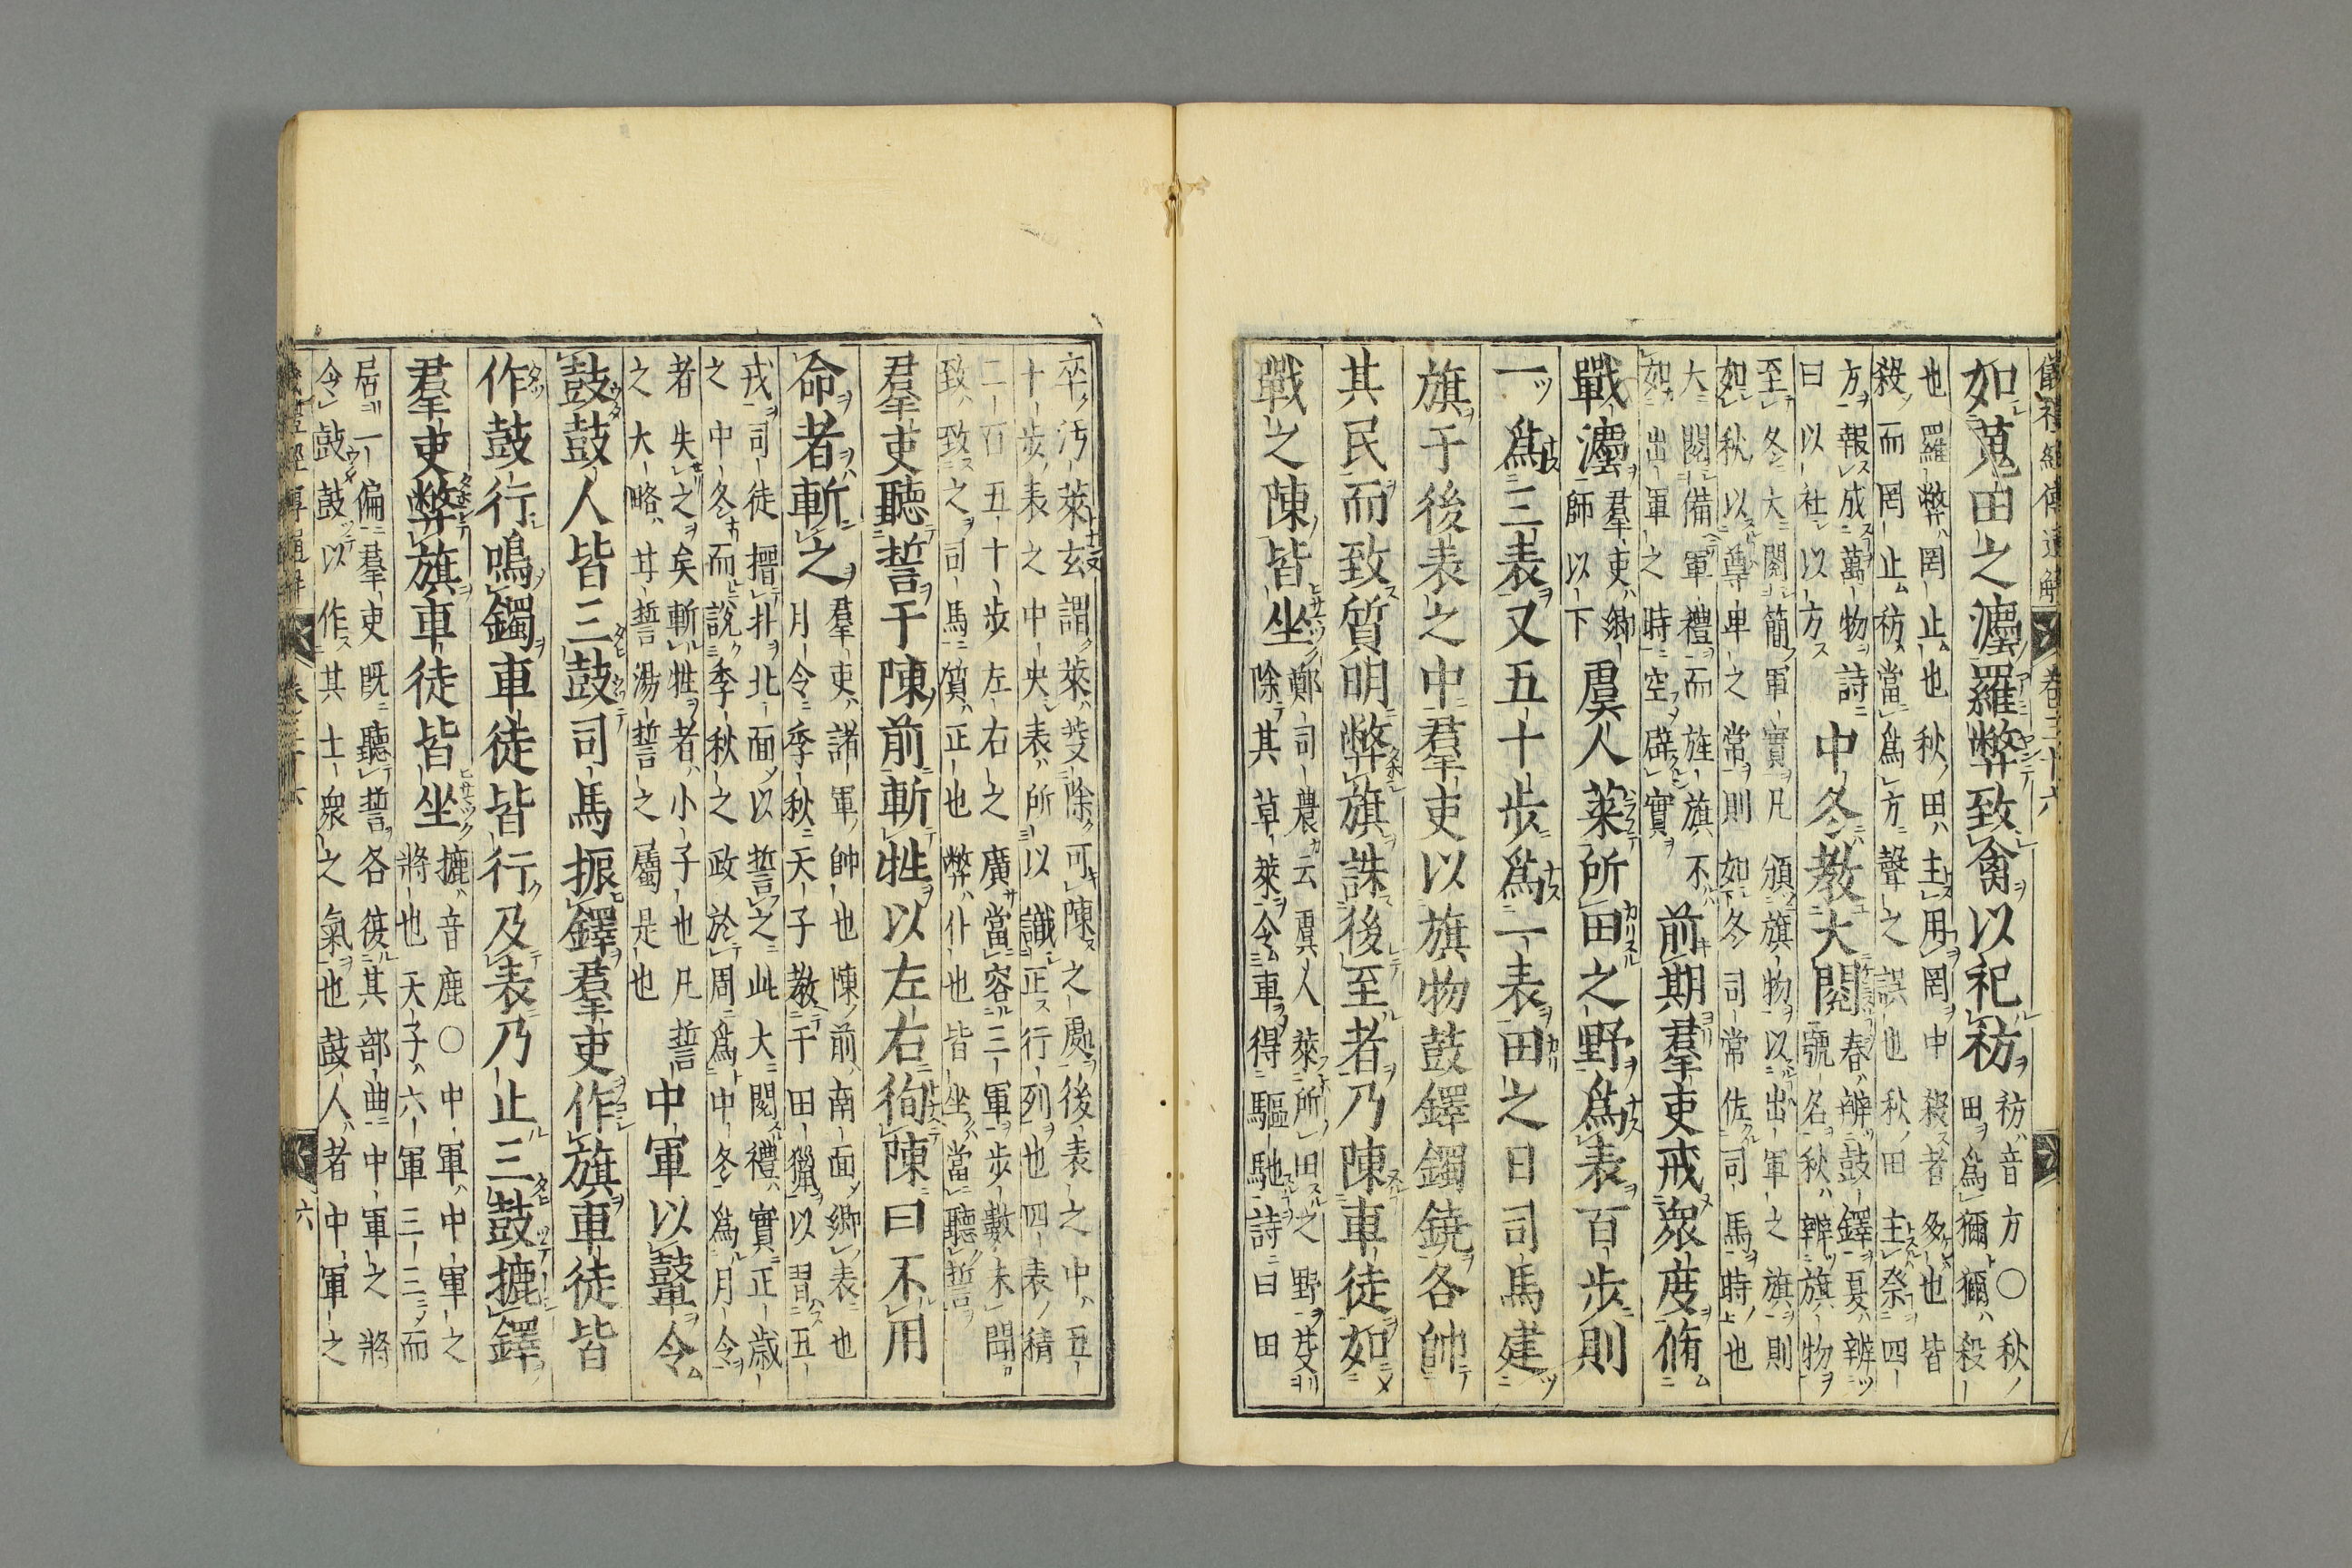 儀禮經傳通解 卷三十六
如蒐田之灋羅弊致禽以祀祊
祊音方○秋
田為獮獮殺
也羅弊罔止也秋田主用罔中殺者多也皆
殺而罔止祊當為方聲之誤也秋田主祭四
方報成萬物詩
曰以社以方
中冬教大閱
春辨鼓鐸夏辨
號名秋辨旗物
至冬大閱簡軍實凡頒旗物以出軍之旗則
如秋以尊卑之常則如冬司常佐司馬時也
大閱備軍禮而旌旗不
如出軍之時空辟實
前期羣吏戒衆庶脩
戰灋
羣吏鄉
師以下
虞人萊所田之野為表百步則
一為三表又五十步為一表田之日司馬建
旗于後表之中羣吏以旗物鼓鐸鐲鐃各帥
其民而致質明弊旗誅後至者乃陳車徒如
戰之陳皆坐
鄭司農云虞人萊所田之野芟
除其草萊令車得驅馳詩曰田
卒汚萊玄謂萊芟除可陳之處後表之中五
十步表之中央表所以識正行列也四表積
二百五十步左右之廣當容三軍步數未聞
致致之司馬質正也弊仆也皆坐當聽誓
羣吏聽誓于陳前斬牲以左右徇陳曰不用
命者斬之
羣吏諸軍帥也陳前南面鄉表也
月令季秋天子教于田獵以習五
戎司徒搢扑北面以誓之此大閱禮實正歲
之中冬而說季秋之政於周為中冬為月令
者失之矣斬牲者小子也凡誓
之大略甘誓湯誓之屬是也
中軍以鼙令
鼓鼓人皆三鼓司馬振鐸羣吏作旗車徒皆
作鼓行鳴鐲車徒皆行及表乃止三鼓摝鐸
羣吏弊旗車徒皆坐
摝音鹿○中軍中軍之
將也天子六軍三三而
居一偏羣吏既聽誓各復其部曲中軍之將
令鼓鼓以作其士衆之氣也鼓人者中軍之
六